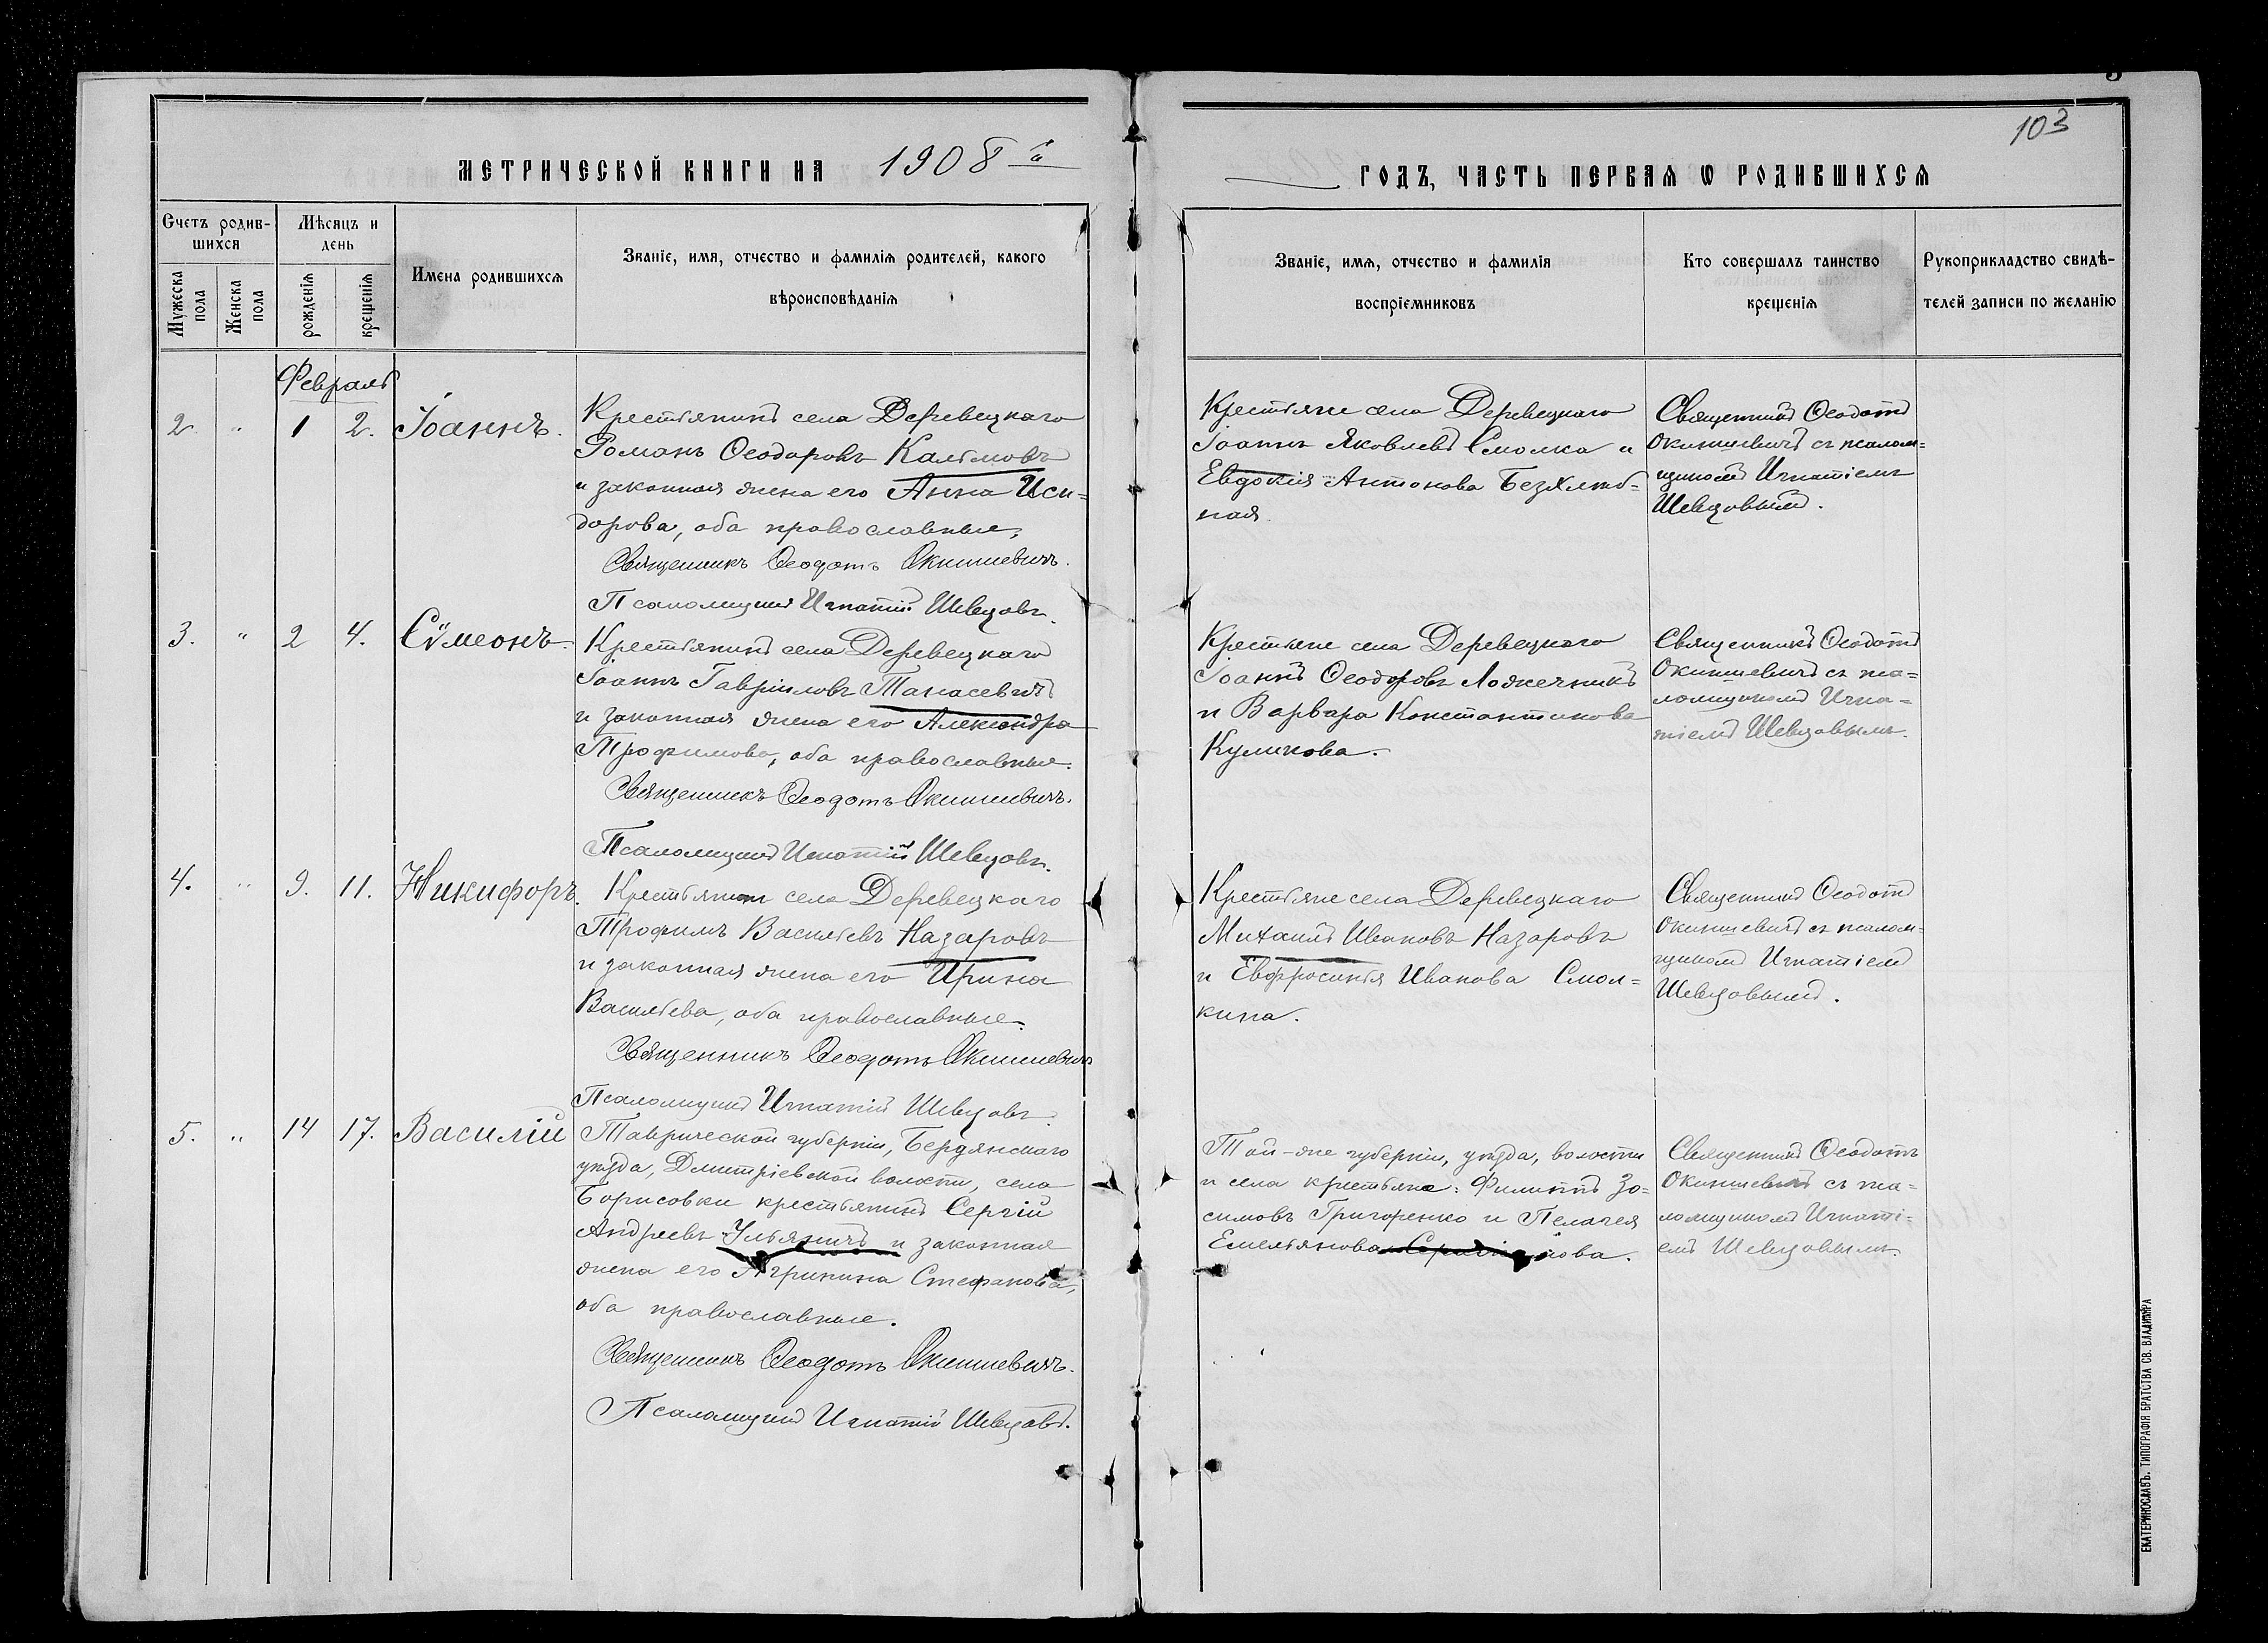 103
МЕТРИЧЕСКОЙ КНИГИ НА 1908 й
ГОДЪ, ЧАСТЬ ПЕРВАЯ Ѡ РОДИВШИХСЯ
Счетъ родив-
шихся
Мужеска
пола
Женска
пола
Мѣсяцъ и
день
рожденія
крещенія
Имена родившихся
Званіе, имя, отчество и фамилія родителей, какого
вѣроисповѣданія
Званіе, имя, отчество и фамилія
воспріемниковъ
Кто совершалъ таинство
крещенія
Рукоприкладство свидѣ-
телей записи по желанію
Февраль
2. " 1 2. Іоаннъ.
Крестьянинъ села Деревецкаго
Романъ Ѳеодоровъ Калѣмовъ
и законная жена его Анна Иси-
дорова, оба православные,
Священникъ Ѳеодотъ Окишевичъ.
Псаломщикъ Игнатій Шевцовъ.
Крестьяне села Деревецкаго
Іоаннъ Яковлевъ Смолка и
Евдокія Антонова Безхлѣб=
ная.
Священникъ Ѳеодотъ
Окишевичъ съ псалом=
щикомъ Игнатіемъ
Шевцовымъ.
3. " 2 4. Сѵмеонъ.
Крестьянинъ села Деревецкаго
Іоаннъ Гавріиловъ Танасевичъ
и законная жена его Александра
Трофимова, оба православные.
Священникъ Ѳеодотъ Окишевичъ.
Псаломщикъ Игнатій Шевцовъ.
Крестьяне села Деревецкаго
Іоаннъ Ѳеодоровъ Ложечникъ
и Варвара Константинова
Куликова.
Священникъ Ѳеодотъ
Окишевичъ съ пса=
ломщикомъ Игна=
тіемъ Шевцовымъ.
4. " 9. 11. Никифоръ.
Крестьянинъ села Деревецкаго
Трофимъ Васильевъ Назаровъ
и законная жена его Ирина
Васильева, оба православные.
Священникъ Ѳеодотъ Окишевичъ
Псаломщикъ Игнатій Шевцовъ.
Крестьяне села Деревецкаго
Михаилъ Ивановъ Назаровъ
и Евфросинія Иванова Смол=
кина.
Священникъ Ѳеодотъ
Окишевичъ съ псалом=
щикомъ Игнатіемъ
Шевцовымъ.
5. " 14 17. Василій
Таврической губерніи, Бердянскаго
уѣзда, Дмитріевской волости, села
Борисовки крестьянинъ Сергій
Андреевъ Ульяничъ и законная
жена его Агрипина Стефанова,
оба православные.
Священникъ Ѳеодотъ Окишевичъ.
Псаломщикъ Игнатій Шевцовъ.
Той-же губерніи, уѣзда, волости
и села крестьяне: Филиппъ Зо=
симовъ Григоренко и Пелагея
Емельянова
Священникъ Ѳеодотъ
Окишевичъ съ пса=
ломщикомъ Игнаті=
емъ Шевцовымъ.
ЕКАТЕРИНОСЛАВЪ. ТИПОГРАФІЯ БРАТСТВА СВ. ВЛАДИМІРА